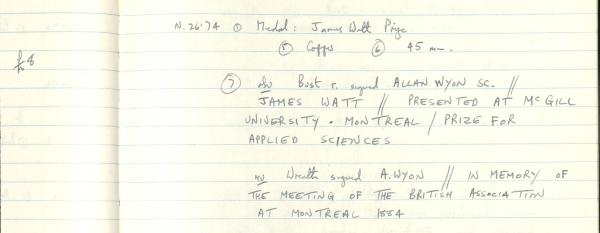 N.26.74 ① Medal: James Watt Prize
£8
⑤ Copper ⑥ 45 mm.
⑦ obv Bust r. signed ALLAN WYON SC. //
JAMES WATT // PRESENTED AT McGILL
UNIVERSITY . MONTREAL / PRIZE FOR
APPLIED SCIENCES
rev Wreath signed A.WYON // IN MEMORY OF
THE MEETING OF THE BRITISH ASSOCIATION
AT MONTREAL 1884